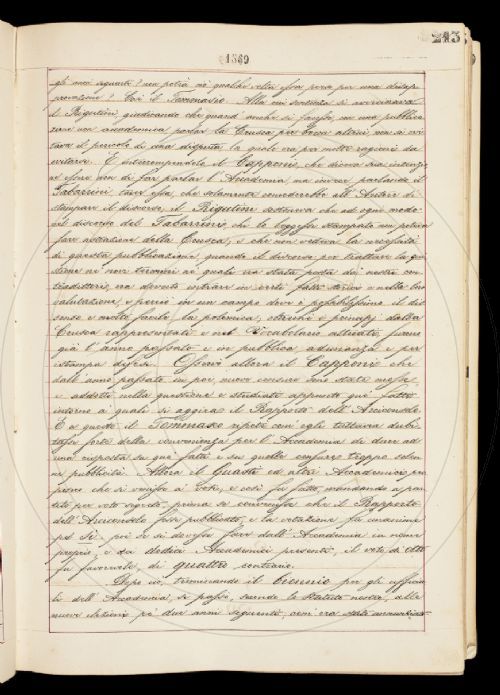 213
1869
gli anni seguenti? non potrà ciò qualche volta esser preso per una disap-
provazione? Così il Tommaseo. Alla cui sentenza si avvicinava
il Rigutini, giudicando che quand' anche si facesse in una pubblica-
zione non accademica parlar la Crusca per bocca altrui, non si evi-
tava il pericolo di una disputa la quale era per molte ragioni da
evitarsi. E interrompendolo il Capponi, che diceva sua intenzione
essere non di far parlar l' Accademia ma invece parlando il
Tabarrini tacer essa, che solamente concederebbe all' Autore di
stampare il discorso, il Rigutini sosteneva che ad ogni modo
nel discorso del Tabarrini, chi lo leggesse stampato non poteva
fare astrazione della Crusca, e che non vedeva la necessità
di questa pubblicazione, quando il discorso per trattare la que-
stione nei veri termini ai quali era stata posta dai nostri con-
tradittori, era dovuto entrare in certi fatti storici e nella loro
valutazione, e perciò in un campo dove è possibilissimo il dis-
senso e molto facile la polemica; poichè i principj dalla
Crusca rappresentati e nel Vocabolario attuati, furono
già l' anno passato e in pubblica adunanza e per
istampa difesi. Osservò allora il Capponi che
dall' anno passato in poi nuove censure sono state mosse
e addotti nella questione e studiati appunto quei fatti
intorno a quali si aggira il Rapporto dell' Arciconsolo.
E a questo il Tommaseo ripetè com' egli tuttavia dubi-
tasse forte della convenienza per l' Accademia di dare ad
una risposta su quei fatti e su quelle censure troppo solen-
ne pubblicità. Allora il Guasti ed altri Accademici pro-
posero che si venisse a' voti, e così fu fatto, mandando a par-
tito per voto segreto, prima se convenisse che il Rapporto
dell' Arciconsolo fosse pubblicato, e la votazione fu unanime
pel Sì: poi se si dovesse fare dall' Accademia in nome
proprio, e dei dodici Accademici presenti, il voto di otto
fu favorevole, di quattro contrario.
Dopo ciò, terminando il biennio per gli ufficia-
li dell' Accademia, si passò, secondo lo Statuto nostro, alle
nuove elezioni pe' due anni seguenti, com' era stato annunziato